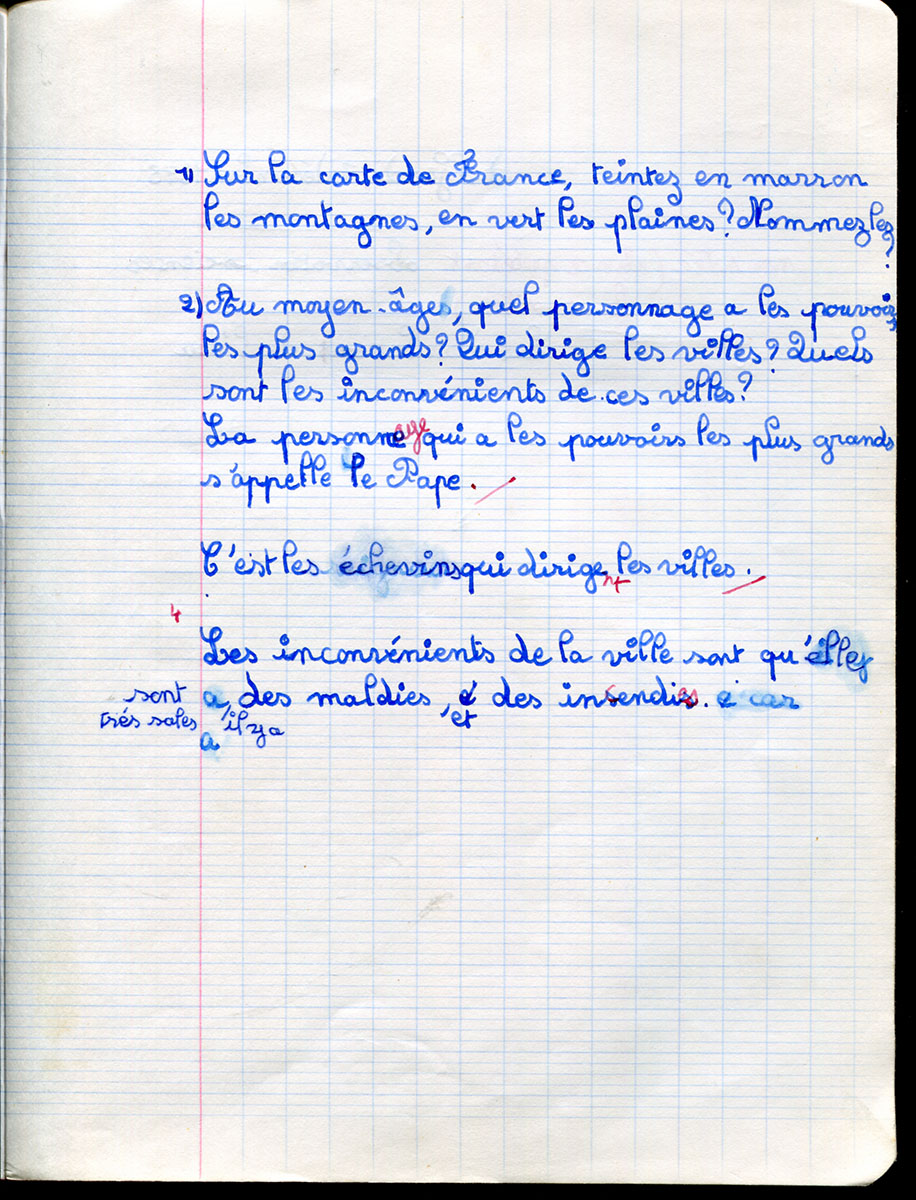 1) Sur la carte de France, teintez en marron
les montagnes, en vert les plaines? Nommez les
?
2) Au moyen-âges, quel personnage a les pouvoirs
les plus grands? Qui dirige les villes? Quels
sont les inconvénients de ces villes?
La personnage qui a les pouvoirs les plus grands
s'appelle le Pape.
C'est les échevins qui dirigent les villes.
4
Les inconvénients de la ville sont qu'elles
sont a, des maldies, et des insendies. car
très sales il y a
a